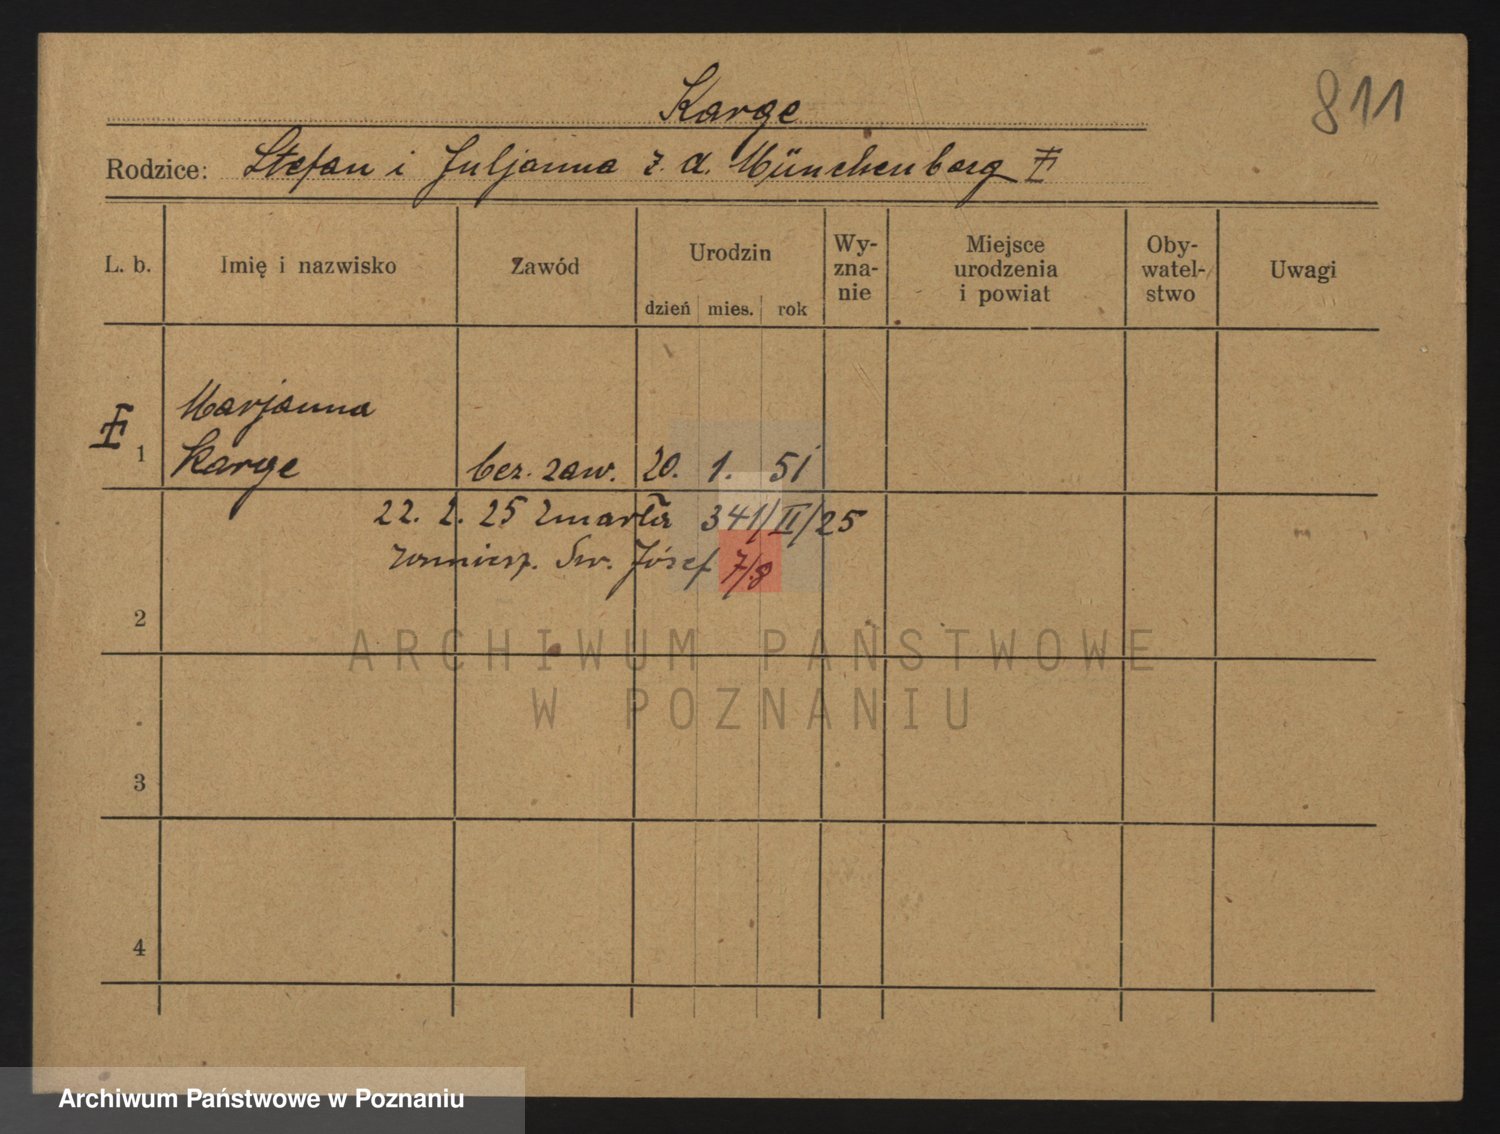 811
Karge
Rodzice: Stefan i Juljanna z. d. Münchenberg
L. b. Imię i nazwisko Zawód Urodzin dzień mies. rok Wy-zna-nie Miejsce urodzenia i powiat Oby-watel-stwo Uwagi
Marjanna
1 Karge bez. zaw. 20. 1. 51
22. 2. 25 zmarła 341/II/25
zamiesz. Św. Józef 7/8
2
ARCHIWUM PAŃSTWOWE
W POZNANIU
3
4
Archiwum Państwowe w Poznaniu